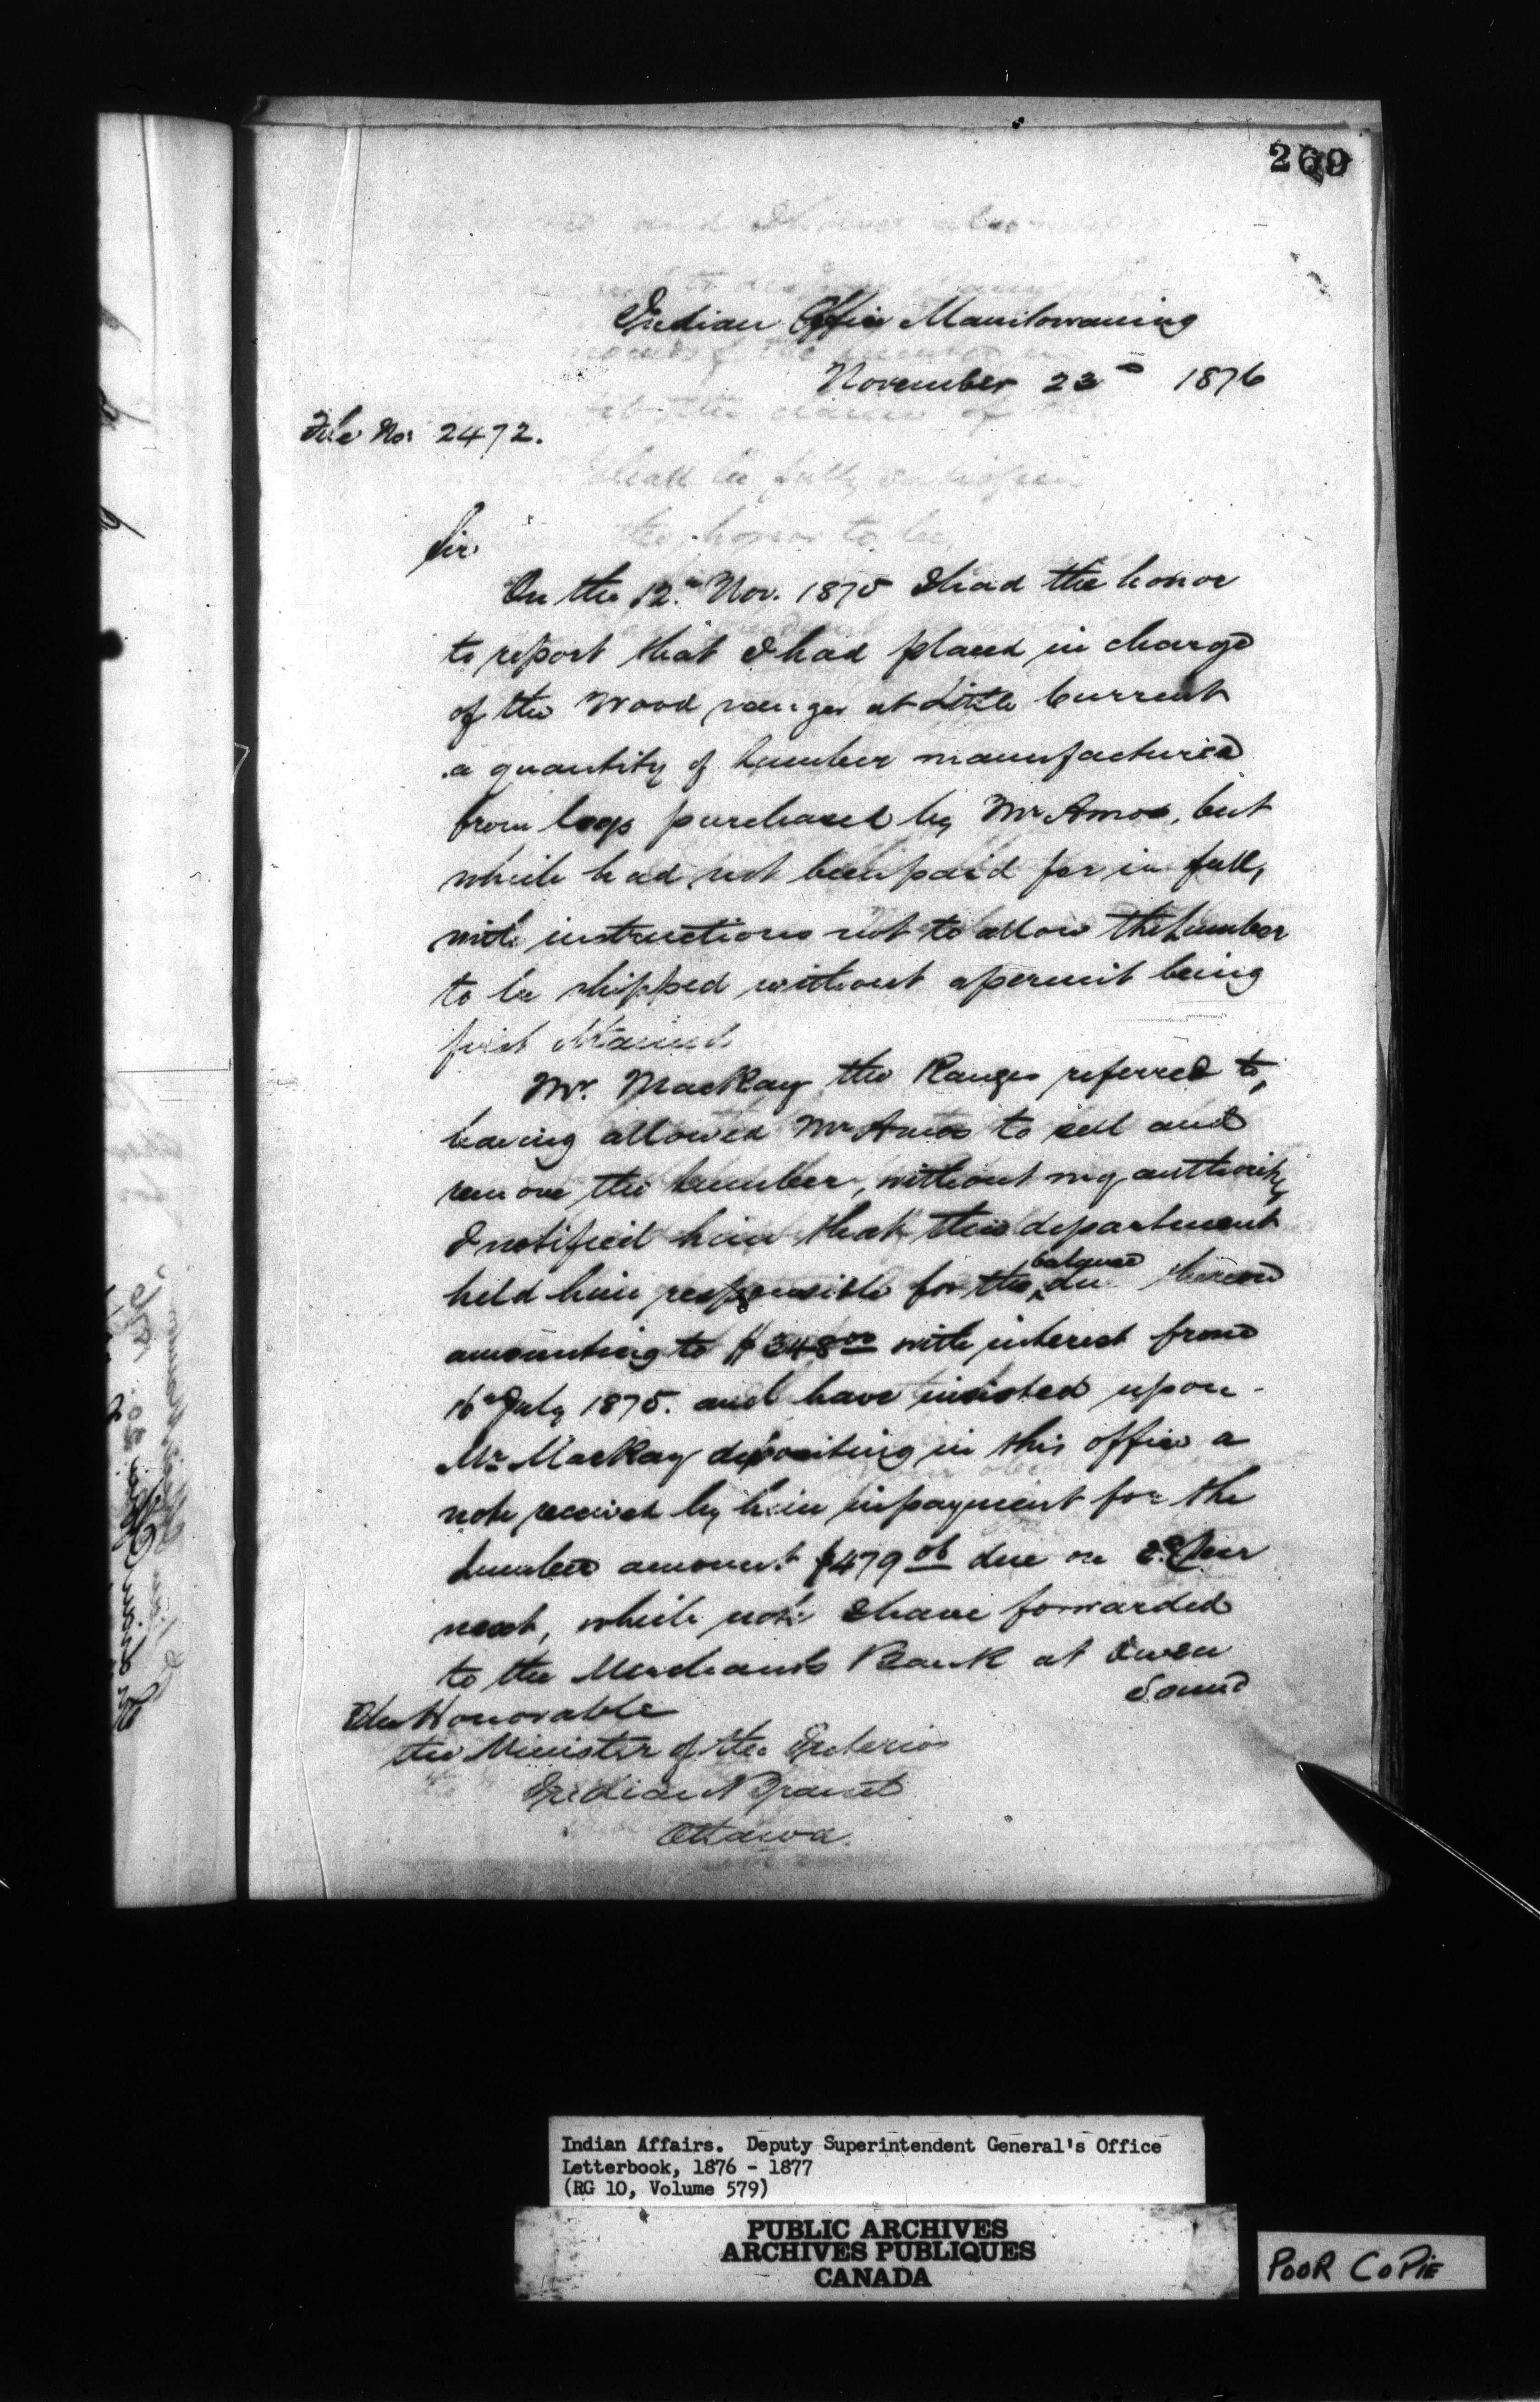 269
Indian Office Manitowaning
November 23rd 1876
File No: 2472.
Sir
On the 12th Nov. 1875 I had the honor
to report that I had placed in charge
of the Wood ranger at Little Current
a quantity of Lumber manufactured
from logs purchased by Mr Amos, but
which had not been paid for in full,
with instructions not to allow the Lumber
to be shipped without a permit being
first obtained
Mr. MacKay the Ranger referred to,
having allowed Mr Amos to sell and
remove the Lumber, without my authority
I notified him that the department
held him responsible for the balance due thereon
amounting to $348.00 with interest from
16th July 1875. and have insisted upon
Mr MacKay depositing in this office a
note received by him in payment for the
Lumber amount $479 06 due on
next, which note I have forwarded
to the Merchants Bank at Owen
Sound
The Honorable
the Minister of the Interior
Indian Branch
Ottawa.
Indian Affairs. Deputy Superintendent General's Office
Letterbook, 1876 - 1877
(RG 10, Volume 579)
PUBLIC ARCHIVES
ARCHIVES PUBLIQUES
CANADA
POOR COPIE